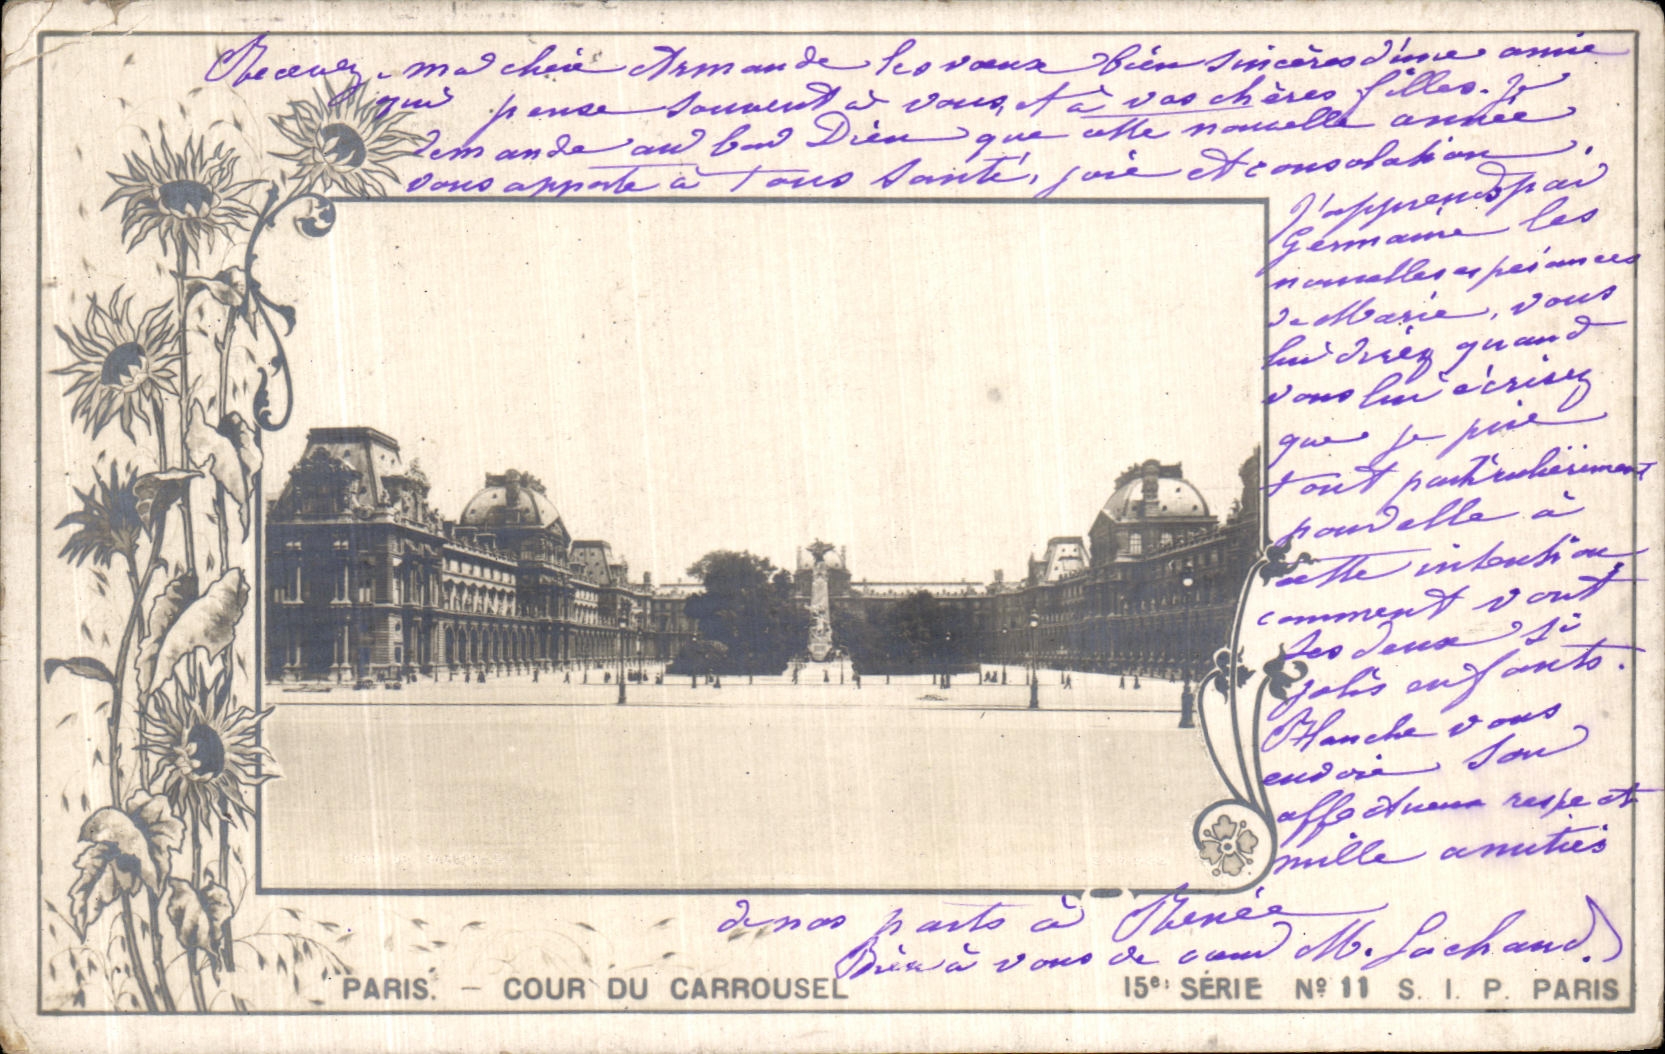 Recevez, ma chère Armande les vœux bien sincères d'une amie
qui pense souvent à vous, et à vos chères filles. Je
demande au bon Dieu que cette nouvelle année
vous apporte à tous santé, joie et consolation.
J'apprends par
Germaine les
nouvelles espérances
de Marie, vous
lui direz quand
vous lui écrirez
que je prie
tout particulièrement
pour elle à
cette intention
comment vont
ses deux si
jolis enfants.
Blanche vous
envoie son
affectueux respect
mille amitiés
de nos parts à Renée
Bien à vous de cœur M. Lachaud.
PARIS. - COUR DU CARROUSEL
15e. SÉRIE Nº 11 S. I. P. PARIS